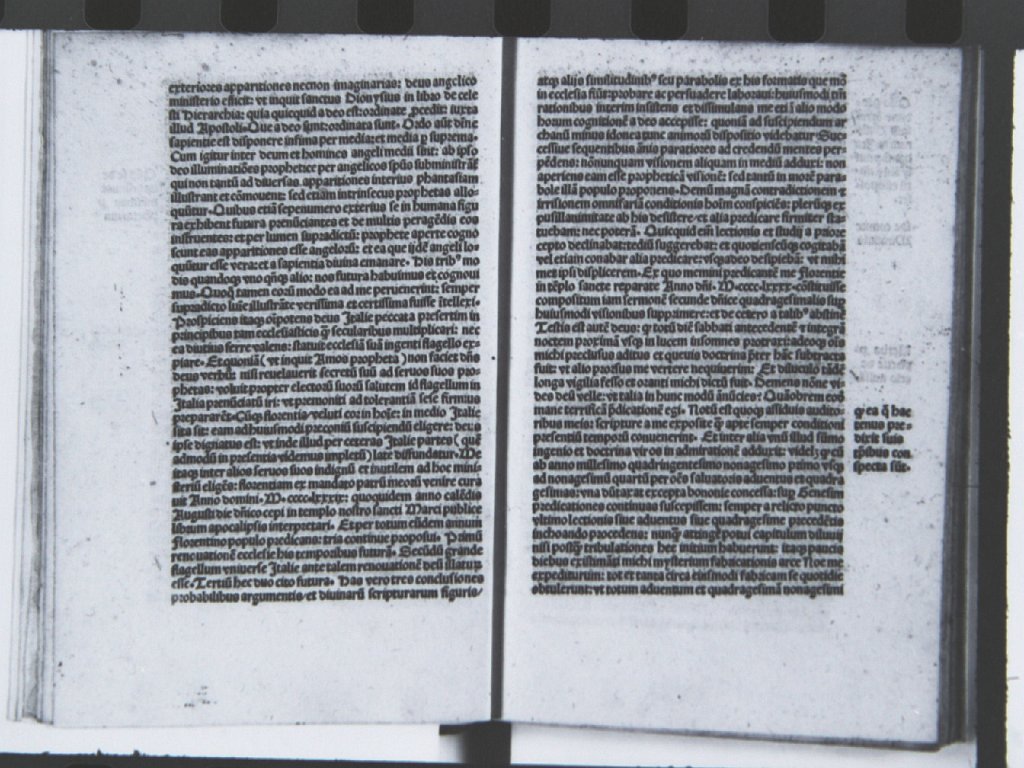 exteriores apparitiones necnon imaginarias: deus angelico
ministerio efficit: vt inquit sanctus Dionysius in libao de cele
sti Hierarchia: quia quicquid a deo est: ordinate ꝓcedit: iuxta
illud Apostoli. Que a deo sunt: ordinata sunt. Ordo aūt diīne
sapientie est disponere infima per media: et media ꝑ suprema.
Cum igitur inter deum et homines angeli medij sint: ab ipso
deo illuminatiōes prophetice per angelicos spūs subministrāt̄
qui non tantū ad diuersas apparitiones interius phantasiam
illustrant et cōmouent: sed etiam intrinsecus prophetas allo⸗
quūtur. Quibus etiā sepenumero exterius se in humana figu
ra exhibent futura prenūciantes et de multis peragēdis eos
instruentes: et per lumen supradictū: prophete aperte cogno
scunt eas apparitiones esse angeloꝝ: et ea que ijdē angeli lo⸗
quūtur esse vera: et a sapientia diuina emanare. His tribꝰ mo
dis quandoqꝫ vno qn̄qꝫ alio: nos futura habuimus et cognoui
mus. Quoqꝫ tamen eoꝝ modo ea ad me peruenerint: semper
supradicto lumīe illustrāte verissima et certissima fuisse ītellexi.
Prospiciens itaqꝫ oīpotens deus Italie peccata presertim in
principibus tam ecclesiasticis ꝙ̄ secularibus multiplicari: nec
ea diutius ferre valens: statuit ecclesiā suā ingenti flagello ex⸗
piare. Et quoniā (vt inquit Amos propheta) non faciet dn̄s
deus verbū: nisi reuelauerit secretū suū ad seruos suos pro⸗
phetas: voluit propter electoꝝ suoꝝ salutem id flagellum in
Italia prenūciatū iri: vt premoniti ad tolerantiā sese firmius
prepararēt. Cūqꝫ florentia veluti cor in hoīe: in medio Italie
sita sit: eam ad huiusmodi preconiū suscipiendū eligere: deus
ipse dignatus est: vt inde illud per ceteras Italie partes (quē
admodū in presentia videmus impletū) late diffundatur. Me
itaqꝫ inter alios seruos suos indignū et inutilem ad hoc mini⸗
steriū eligēs: florentiam ex mandato patrū meoꝝ venire cura
uit Anno domini. M. cccc lxxxix: quoquidem anno calēdis
Augusti die dn̄ico cepi in templo nostro sancti Marci publice
librum apocalipsis interpretari. Et per totum eūdem annum
florentino populo predicans: tria continue proposui. Primū
renouationē ecclesie his temporibus futurā. Secūdū grande
flagellum vniuerse Italie ante talem renouationē deū illaturū
esse. Tertiū hec duo cito futura. Has vero tres conclusiones
probabilibus argumentis et diuinaꝝ scripturarum figuris
atqꝫ alijs similitudinibꝰ seu parabolis ex his formatis que mō
in ecclesia fiūt: probare ac persuadere laboraui: huiusmodi tm̄
rationibus interim insistens et dissimulans me ex ī alio modo
horum cognitionē a deo accepisse: quoniā ad suscipiendum ar
chanū minus idonea tunc animoꝝ dispositio videbatur. Suc⸗
cessiue sequentibus ānis paratiores ad credendū mentes per⸗
pēdens: nōnunquam visionem aliquam in mediū adduxi: non
aperiens eam esse propheticā visionē: sed tantū in morē para⸗
bole illā populo proponens. Demū magnā contradictionem et
irrisionem omnifariā conditionis hoīm conspiciēs: plerūqꝫ ex
pusillanimitate ab his desistere et alia predicare firmiter sta⸗
tuebam: nec poterā. Quicquid em̄ lectionis et studij a priore
cepto declinabat: tediū suggerebat: et quotienscūqꝫ cogitabā
vel etiam conabar alia predicare: vsqꝫadeo despiebā: vt mihi
met ipsi displicerem. Ex quo memini predicantē me florentie
in tēplo sancte reparate Anno dn̄i. M. cccc lxxxx. constituisse
compositum iam sermonē secunde dn̄ice quadragesimalis sup
huiusmodi visionibus supprimere: et de cetero a talibꝰ abstinē
Testis est autē deus: ꝙ totū diē sabbati antecedentē et integrā
noctem proximā vsqꝫ in lucem insomnes protraxi: adeoqꝫ oīs
michi preclusus aditus et queuis doctrina p̄ter hāc subtracta
fuit: vt alio prorsus me vertere nequiuerim. Et diluculo tādē
longa vigilia fesso et oranti michi dictū fuit. Demens nōne vi⸗
des deū velle: vt talia in hunc modū ānūcies: Quāobrem eodē
mane terrificā p̄dicationē egi. Notū est quoqꝫ assiduis audito⸗
ribus meis: scripture a me exposite ꝙ̄ apte semper conditioni
presentiū temporū conuenerint. Et inter alia vnū illud sūmo
ingenio et doctrina viros in admirationē adduxit: videlꝫ ꝙ cū
ab anno millesimo quadringentesimo nonagesimo primo vsqꝫ
ad nonagesimū quartū per oēs saluatoris aduentus et quadra
gesimas: vna dūtaxat excepta bononie concessa: sup Genesim
predicationes continuas suscepissem: semper a relicto puncto
vltimo lectionis siue aduentus siue quadragesime precedētis
inchoando procedens: nunqꝫ attingē potui capitulum diluuij
nisi postqꝫ tribulationes hec initium habuerunt: itaqꝫ paucis
diebus existimāti michi mysterium fabricationis arce Noe me
expediturum: tot et tanta circa eiusmodi fabricam se quotidie
obtulerunt: vt totum aduentum et quadragesimā nonagesimi
ꝙ ea q̄ hac
tenus pre⸗
dixit suis
ep̄ibus con
specta sūt.